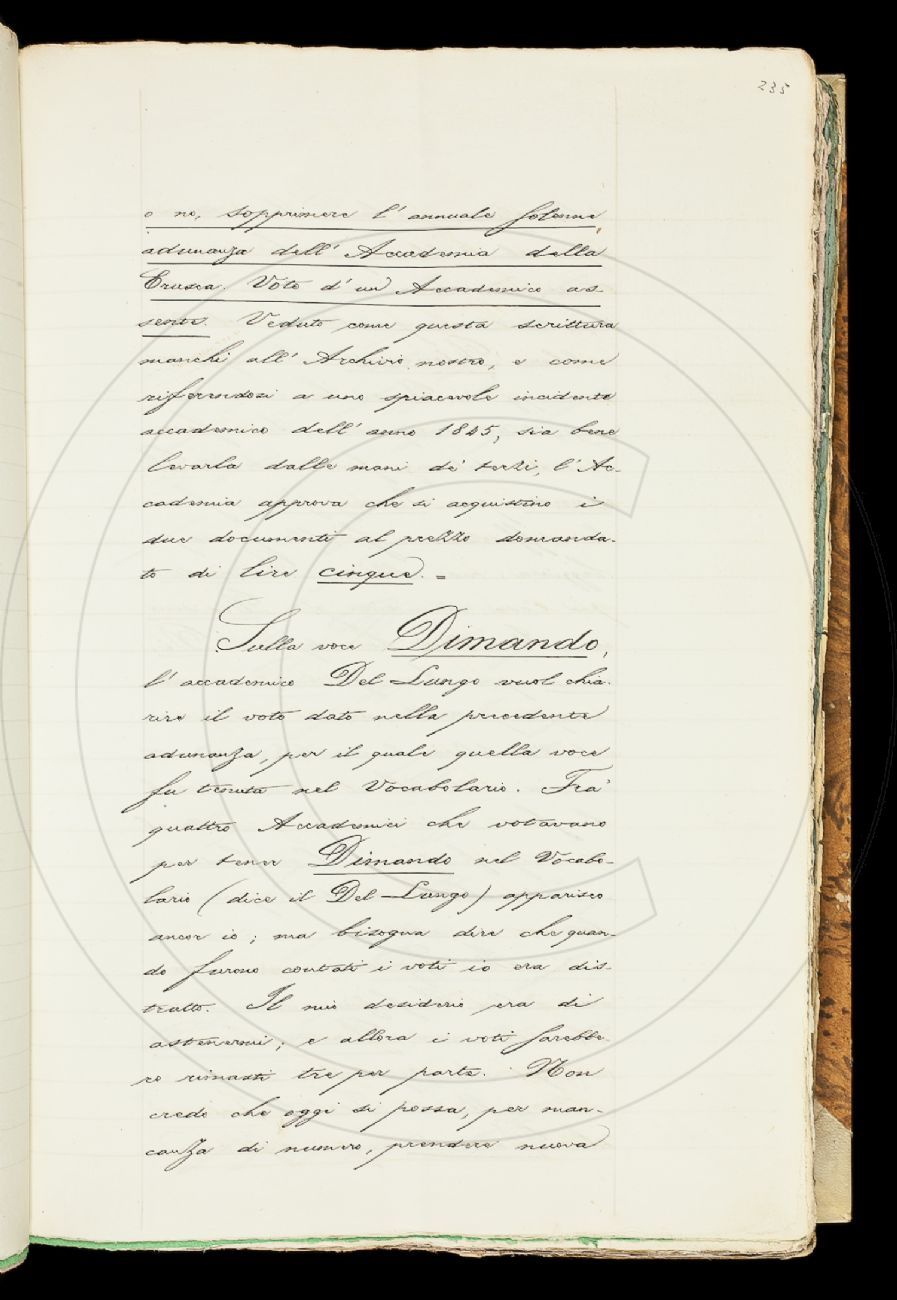 235
o no, sopprimere l'annuale solenne
adunanza dell'Accademia della
Crusca. Voto d'un Accademico as-
sente. Veduto come questa scrittura
manchi all'Archivio nostro, e come
riferendosi a uno spiacevole incidente
accademico dell'anno 1845, sia bene
levarla dalle mani de' terzi, l'Ac-
cademia approva che si acquistino i
due documenti al prezzo domanda-
to di lire cinque. =
Sulla voce Dimando,
l'accademico Del Lungo vuol chia-
rire il voto dato nella precedente
adunanza, per il quale quella voce
fu tenuta nel Vocabolario. Fra'
quattro Accademici che votavano
per tener Dimando nel Vocabo-
lario (dice il Del Lungo) apparisco
ancor io; ma bisogna dire che quan-
do furono contati i voti io era dis-
tratto. Il mio desiderio era di
astenermi; e allora i voti sarebbe-
ro rimasti tre per parte. Non
credo che oggi si possa, per man-
canza di numero, prendere nuova